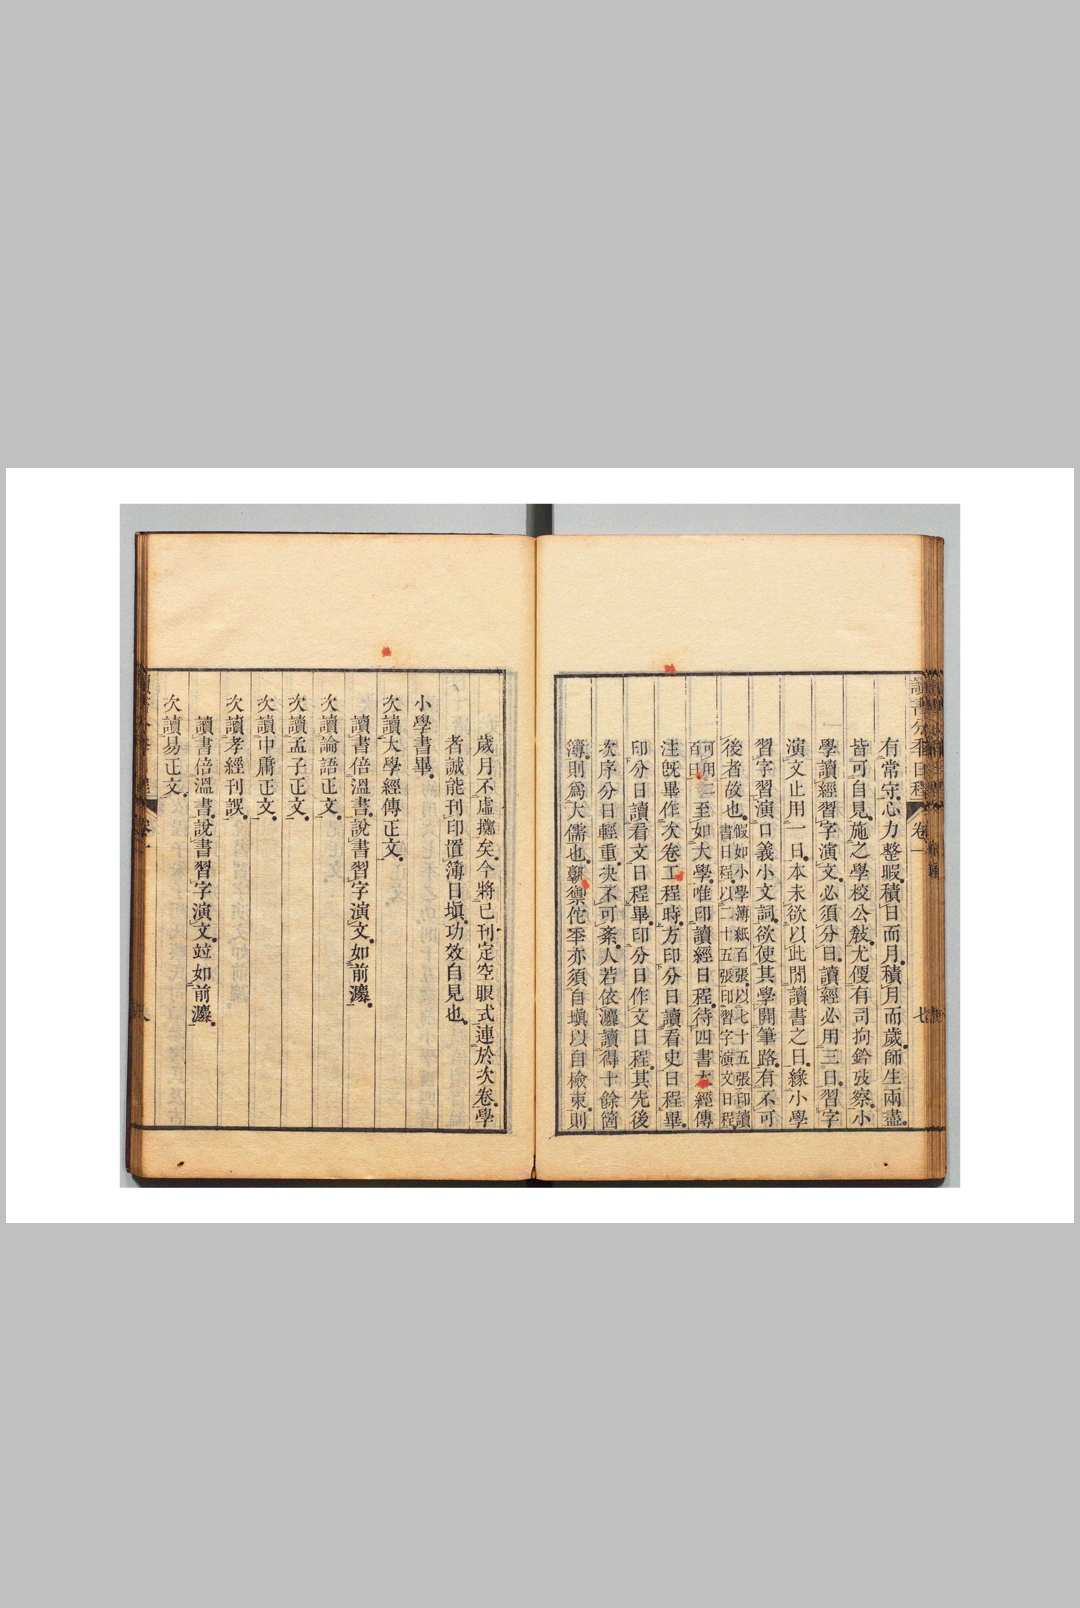 讀書分年日程 卷一 七
有常守心力整暇積日而月積月而歲師生兩盡
皆可自見施之學校公敎尤便有司拘鈐攷察小
學讀經習字演文必須分日讀經必用三日習字
演文止用一日本未欲以此間讀書之日緣小學
習字習演口義小文詞欲使其學開筆路有不可
後者故也假如小學簿紙百張以七十五張印讀
書日程以二十五張印習字演文日程
可用二
百日至如大學惟印讀經日程待四書大經傳
注旣畢作次卷工程時方印分日讀看史日程畢
印分日讀看文日程畢印分日作文日程其先後
次序分日輕重決不可紊人若依灋讀得十餘箇
簿則爲大儒也孰禦佗年亦須自塡以自檢束則
歲月不虛擲矣今將已刊定空眼式連於次卷學
者誠能刊印置簿日塡功效自見也
小學書畢
次讀大學經傳正文
讀書倍溫書說書習字演文如前灋
次讀論語正文
次讀孟子正文
次讀中庸正文
次讀孝經刊誤
讀書倍溫書說書習字演文竝如前灋
次讀易正文